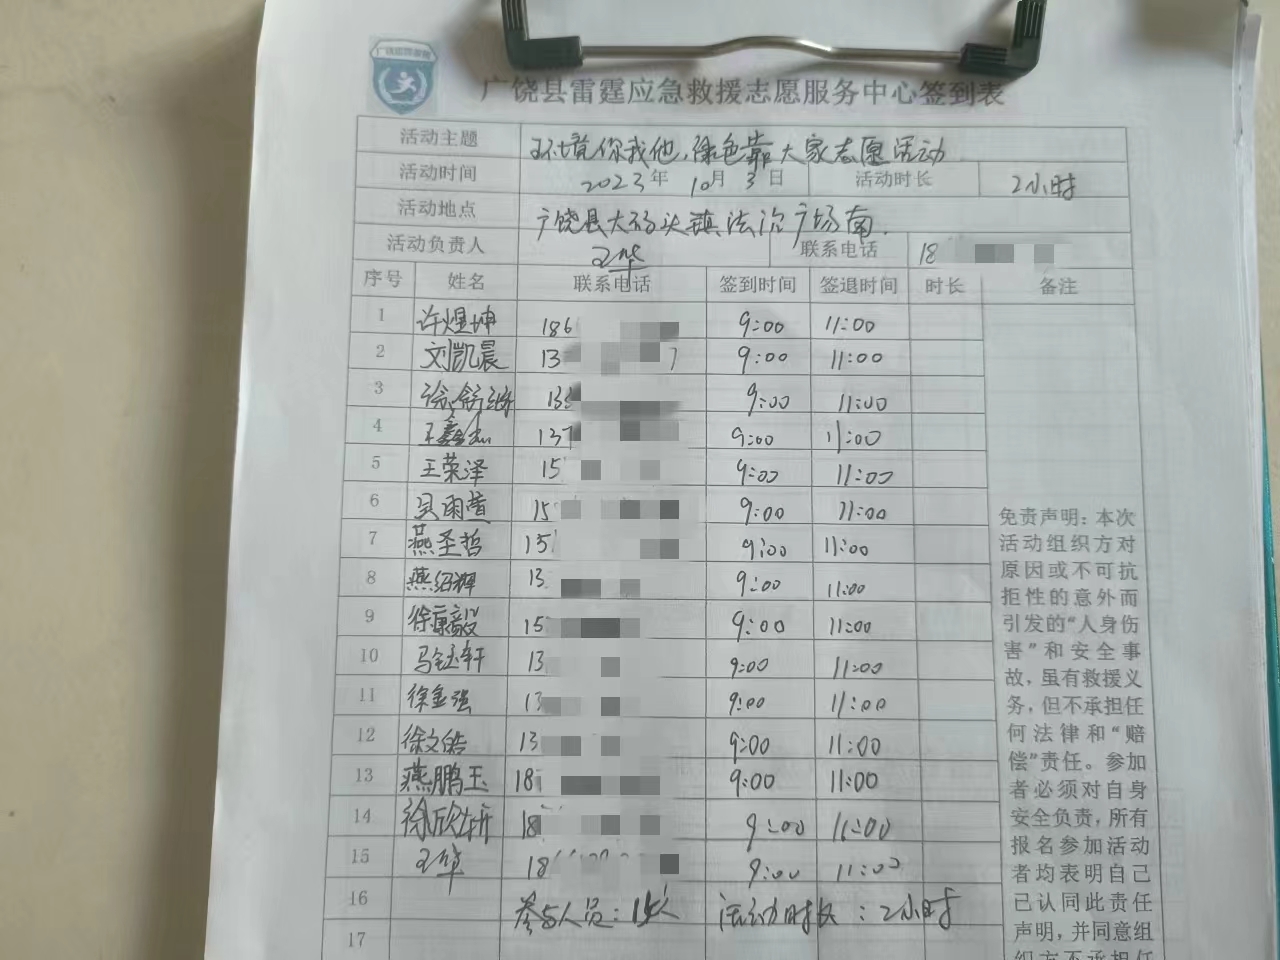 广饶县雷霆应急救援志愿服务中心签到表
活动主题 环境你我他,绿色靠大家志愿活动
活动时间 2023年 10月 3日 活动时长 2小时
活动地点 广饶县大码头镇法治广场南.
活动负责人 王华 联系电话 18
序号 姓名 联系电话 签到时间 签退时间 时长 备注
1 许煜坤 186 9:00 11:00
2 刘凯晨 13 7 9:00 11:00
3 133 9:00 11:00
4 137 9:00 11:00
5 王荣泽 15 9:00 11:00
6 吴雨萱 15 9:00 11:00
7 燕圣哲 15 9:00 11:00
8 燕绍辉 13 9:00 11:00
9 徐康毅 15 9:00 11:00
10 马钰轩 13 9:00 11:00
11 徐金强 13 9:00 11:00
12 徐文皓 13 9:00 11:00
13 燕鹏玉 187 9:00 11:00
14 徐欣妍 18 9:00 11:00
15 王华 18 9:00 11:00
16 参与人员: 15人 活动时长:2小时
17
免责声明:本次
活动组织方对
原因或不可抗
拒性的意外而
引发的“人身伤
害”和安全事
故,虽有救援义
务,但不承担任
何法律和“赔
偿”责任。参加
者必须对自身
安全负责,所有
报名参加活动
者均表明自己
已认同此责任
声明,并同意组
织方不承担任